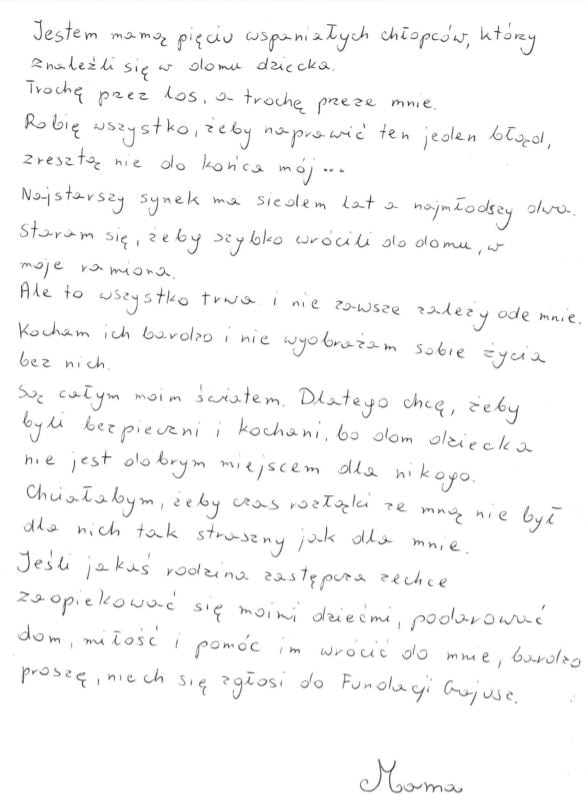 Jestem mamą pięciu wspaniałych chłopców, którzy
znaleźli się w domu dziecka.
Trochę przez los, a trochę przeze mnie.
Robię wszystko, żeby naprawić ten jeden błąd,
zresztą nie do końca mój...
Najstarszy synek ma siedem lat a najmłodszy dwa.
Staram się, żeby szybko wrócili do domu, w
moje ramiona.
Ale to wszystko trwa i nie zawsze zależy ode mnie.
Kocham ich bardzo i nie wyobrażam sobie życia
bez nich.
Są całym moim światem. Dlatego chcę, żeby
byli bezpieczni i kochani, bo dom dziecka
nie jest dobrym miejscem dla nikogo.
Chciałabym, żeby czas rozłąki ze mną nie był
dla nich tak straszny jak dla mnie.
Jeśli jakaś rodzina zastępcza zechce
zaopiekować się moimi dziećmi, podarować
dom, miłość i pomóc im wrócić do mnie, bardzo
proszę, niech się zgłosi do Fundacji Gajusz.
Mama